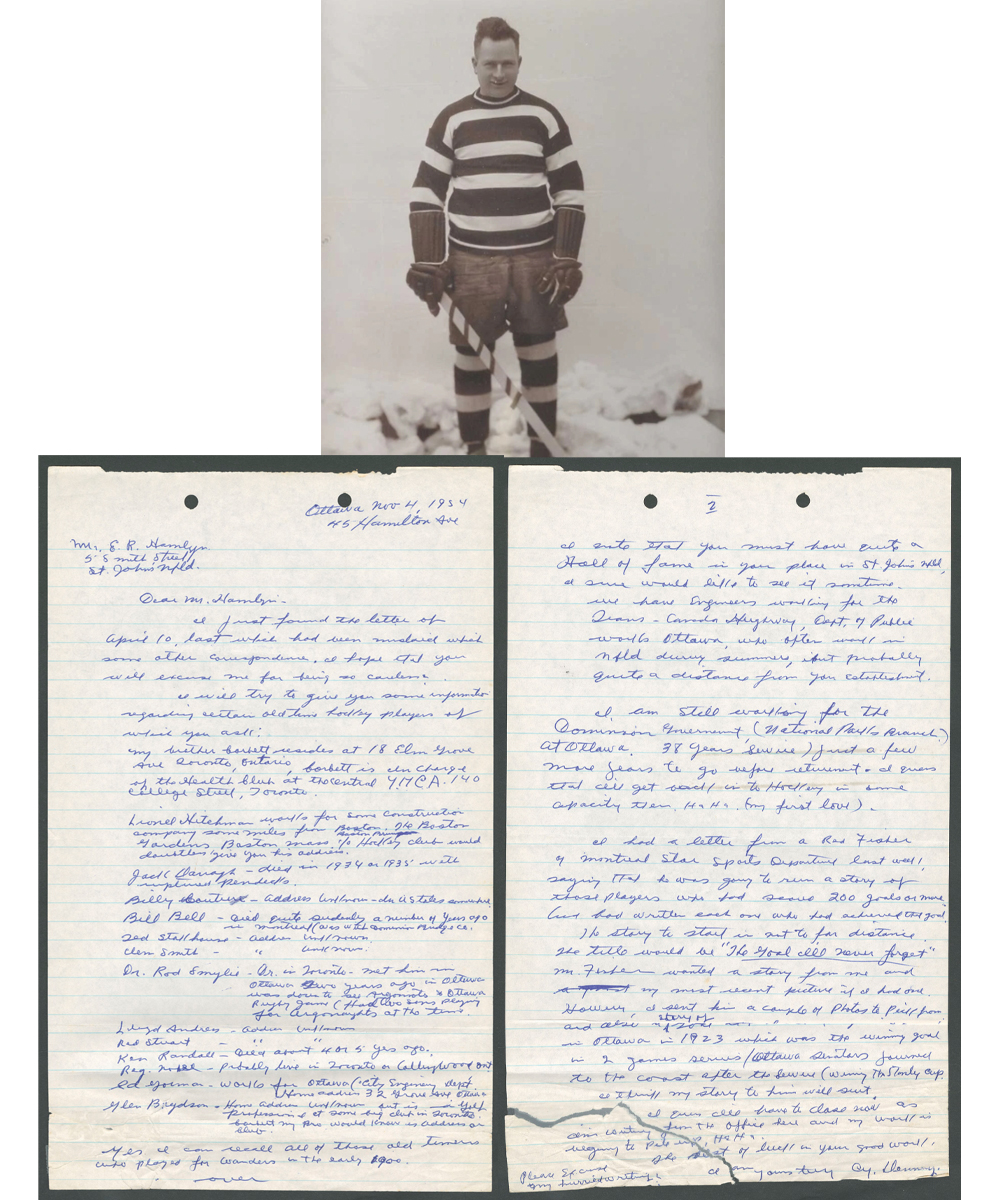 Ottawa Nov 4, 1954
45 Hamilton Ave
Mr. E. R. Hamlyn
5 Smith Street
St. Johns Nfld.
Dear Mr. Hamlyn -
I just found the letter of
April 10, last which had been mislaid with
some other correspondence. I hope that you
will excuse me for being so careless.
I will try to give you some information
regarding certain old time hockey players of
which you ask:
My brother Corbett resides at 18 Elm Grove
Ave Toronto, Ontario, Corbett is in charge
of the Health Club at the Central Y.M.C.A. 140
College Street, Toronto.
Lionel Hitchman works for some construction
company some miles from Boston. The Boston
Gardens, Boston, Mass. c/o Hockey Club would
doubtless give you his address.
Jack Darragh - died in 1934 or 1935 with
ruptured
Billy Boucher - address unknown - in U States somewhere
Bill Bell - died quite suddenly a number of years ago
in Montreal (was with Dominion Bridge Co.
Ted Stackhouse - address unknown
Clem Smith - " unknown.
Dr. Rod Smylie - Dr. in Toronto - met him in
Ottawa two years ago in Ottawa
was down to see Argonauts & Ottawa
Rugby game (Had two sons playing
for Argonaughts at the time.
Lloyd Andrews - address unknown
Red Stuart - " "
Ken Randall - Died about 4 or 5 yrs ago.
Reg. Noble - Probably live in Toronto or Collingwood Ont
Ed Gorman - works for Ottawa City Engineers Dept
Home address 32 Grove Ave Ottawa
Glen Brydson - Home address unknown but is in Golf
professional at some big club in Toronto.
Corbett my Bro would know is address or
club.
Yes I can recall all of those old timers
who played for Wanders in the early 1900.
over
2
I note that you must have quite a
Hall of fame in your place in St John's Nfld,
I sure would like to see it sometime.
We have Engineers working for the
Trans-Canada Highway, Dept. of Public
Works Ottawa, who often work in
Nfld during summer, but probably
quite a distance from your establishment.
I am still working for the
Dominion Government (National Parks Branch)
at Ottawa. 38 Years Service) Just a few
more years to go before retirement. I guess
that I'll get back in to Hockey in some
capacity then, Ha Ha. (my first love).
I had a letter from a Red Fisher
of Montreal Star Sports Department last week
saying that he was going to run a story of
those players who had scored 200 goals or more
and had written each one who had achieved that goal.
The story to start in not to far distance.
The title would be "The Goal I'll never forget"
Mr. Fisher wanted a story from me and
my most recent picture if I had one.
However, I sent him a couple of Photos to Pick from
and also story of
in Ottawa in 1923 which was the winning goal
in 2 games series (Ottawa Senators journed
to the coast after the series (winning The Stanley Cup.
I think my story to him will suit.
I guess I'll have to close now as
I'm writing from the office here and my work is
begging to pile up, Ha Ha.
The best of luck in your good work.
I am yours truly Cy. Denneny.
Please Excuse
my hurried writing!